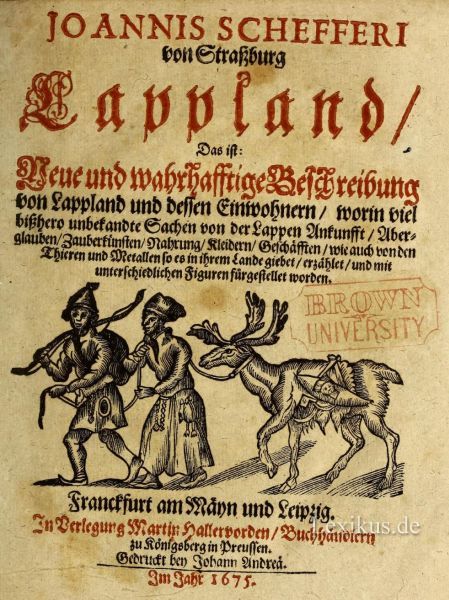 JOANNIS SCHEFFERI
von Straßburg
Lappland/
Das ist:
Neue und wahrhafftige Beschreibung
von Lappland und dessen Einwohnern / worin viel
bißhero unbekandte Sachen von der Lappen Ankunfft / Aber-
glauben / Zauberkünsten / Nahrung / Kleidern / Geschäfften / wie auch von den
Thieren und Metallen so es in ihrem Lande giebet / erzählet / und mit
unterschiedlichen Figuren fürgestellet worden.
BROWN
UNIVERSITY
Franckfurt am Mäyn und Leipzig.
In Verlegung Martin Hallervorden / Buchhändlern
zu Königsberg in Preussen.
Gedruckt bey Johann Andreä.
Im Jahr 1675.
Lexikus.de